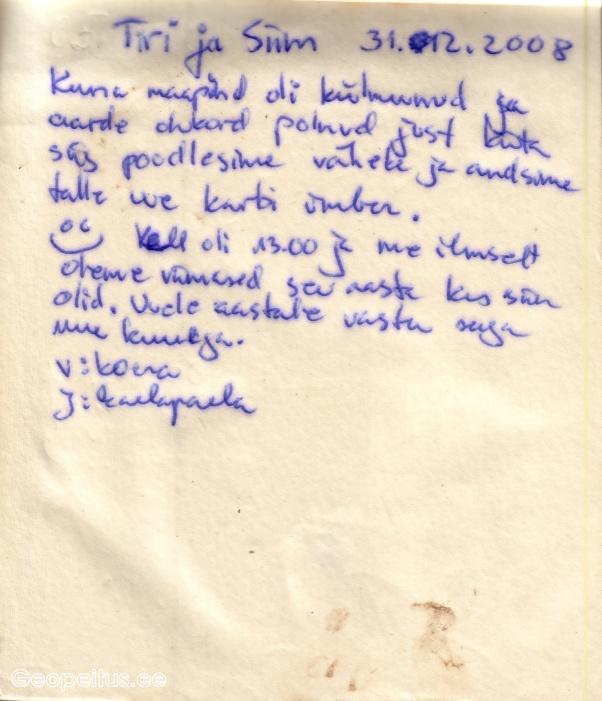 Tiri ja Siim 31.12.2008
Kuna maapind oli külmunud ja
aarde olukord polnud just kiita
siis poodlesime vähele ja andsime
talle uue karbi ümber.
Kell oli 13.00 ja me ilmselt
oleme viimased sel aasta kes siin
olid. Uuele aastale vastu saga
muu kuulega.
v: koera
j: kaelapaela
Geopeitus.ee